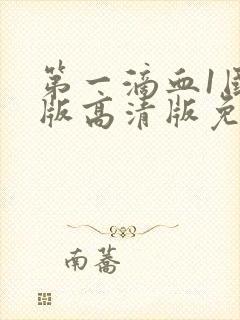 第一滴血1
版高清版免
南蕎